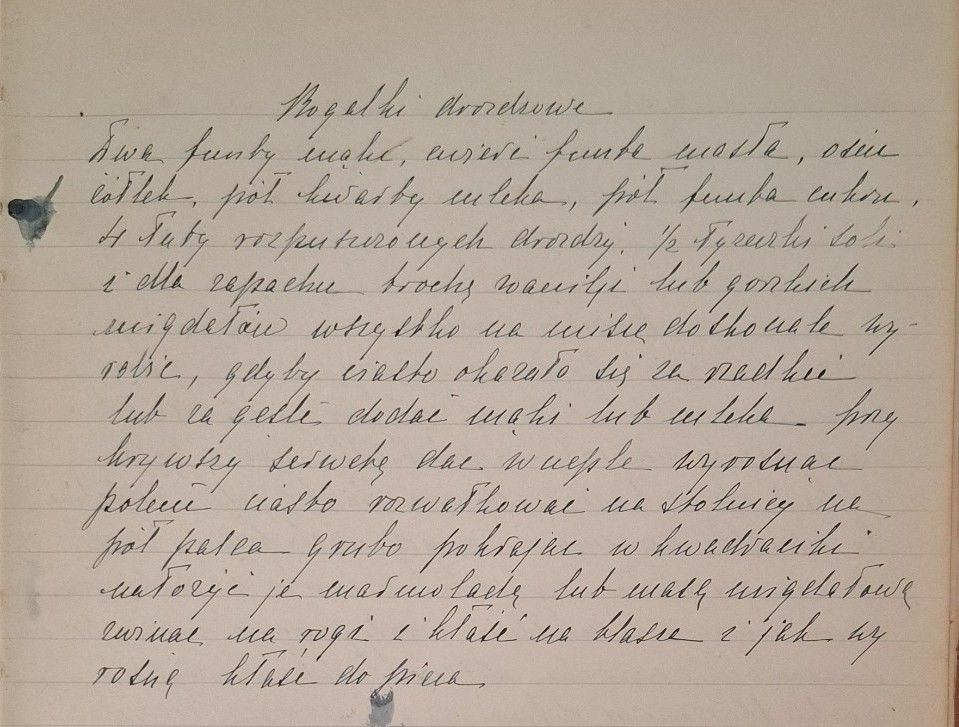 Rogalki drożdżowe
Dwa funty mąki, ćwierć funta masła, osiem
żółtek, pół kwarty mleka, pół funta cukru,
4 łuty rozpuszczonych drożdży, 1/2 łyżeczki soli
i dla zapachu trochę wanilji lub gorzkich
migdałów wszystko na misie doskonale wy-
robić, gdyby ciasto okazało się za rzadkie
lub za gęste dodać mąki lub mleka przy
krywszy serwetą dać w cieple wyrosnąć
potem ciasto rozwałkować na stolnicy na
pół palca grubo pokrajać w kwadraciki
nałożyć je marmoladą lub masą migdałową
zwinąć na rogi i kłaść na blasze i jak wy
rosną kłaść do pieca